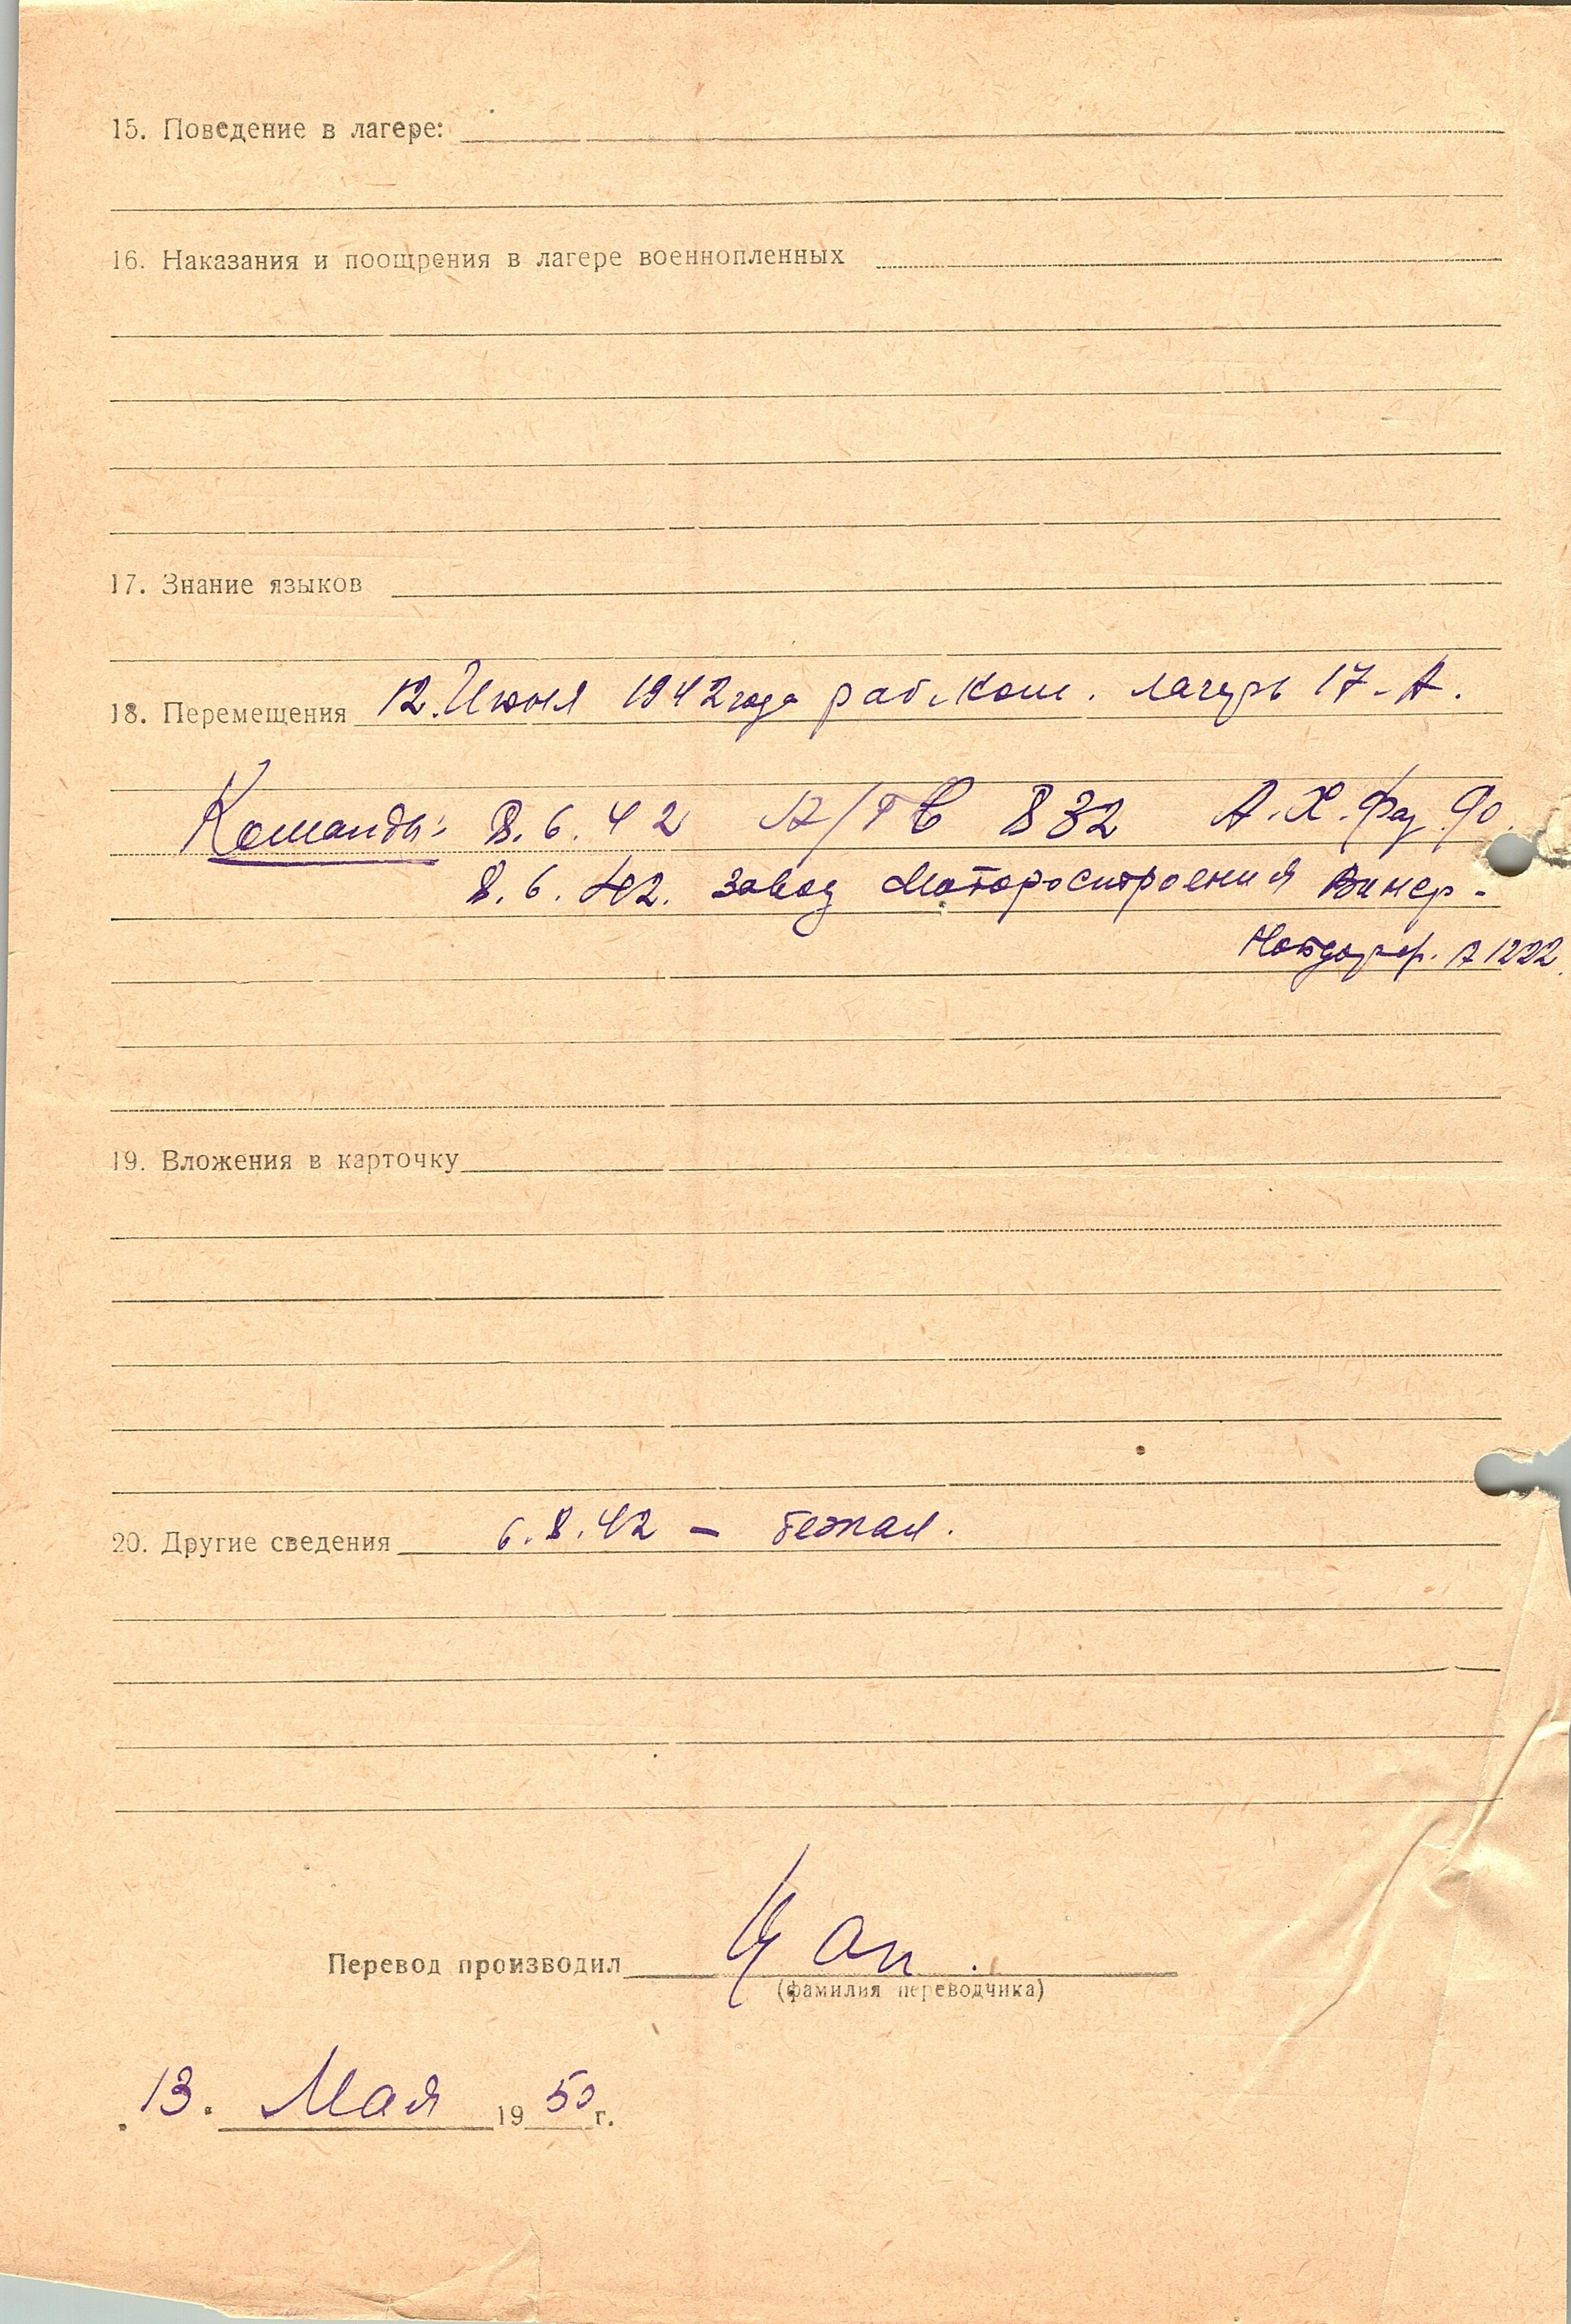 15. Поведение в лагере:
16. Наказания и поощрения в лагере военнопленных
17. Знание языков
18. Перемещения 12. Июня 1942 года раб. ком. лагерь 17-А.
Команды: 8.6.42 832 А.Х.
8.6.42. завод Моторостроения Винер-
А 1222.
19. Вложения в карточку
20. Другие сведения 6.8.42 - бежал.
Перевод производил Цап.
(фамилия переводчика)
13. Мая 1950 г.